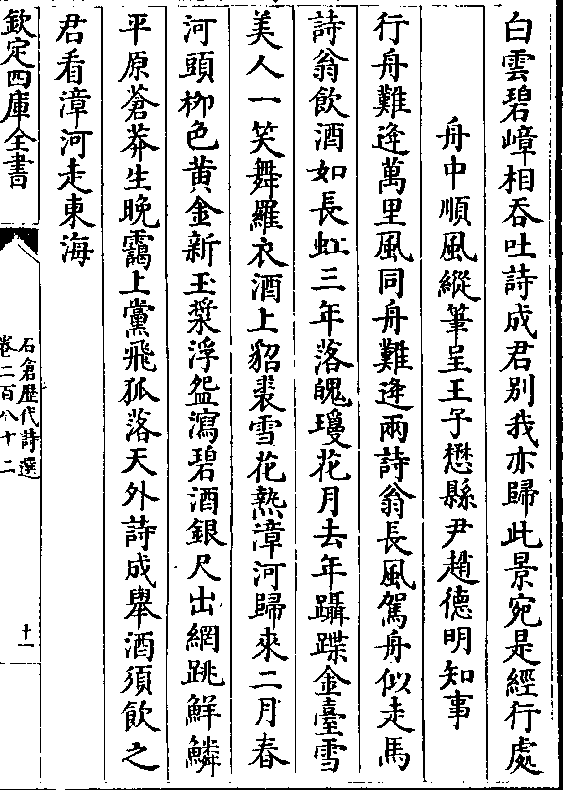 白雲碧嶂相吞吐詩成君別我亦歸此景宛是經行處
舟中順風縱筆呈王子懋縣尹趙德明知事
行舟難逢萬里風同舟難逢兩詩翁長風駕舟似走馬
詩翁飲酒如長虹三年落魄瓊花月去年躡蹀金臺雪
美人一笑舞羅衣酒上貂裘雪花熱漳河歸來二月春
河頭柳色黄金新玉漿浮盌瀉碧酒銀尺出網跳鮮鱗
平原蒼莽生晚靄上黨飛狐落天外詩成舉酒須飲之
君看漳河走東海
欽定四庫全書
石倉歷代詩選
卷二百八十二
十一